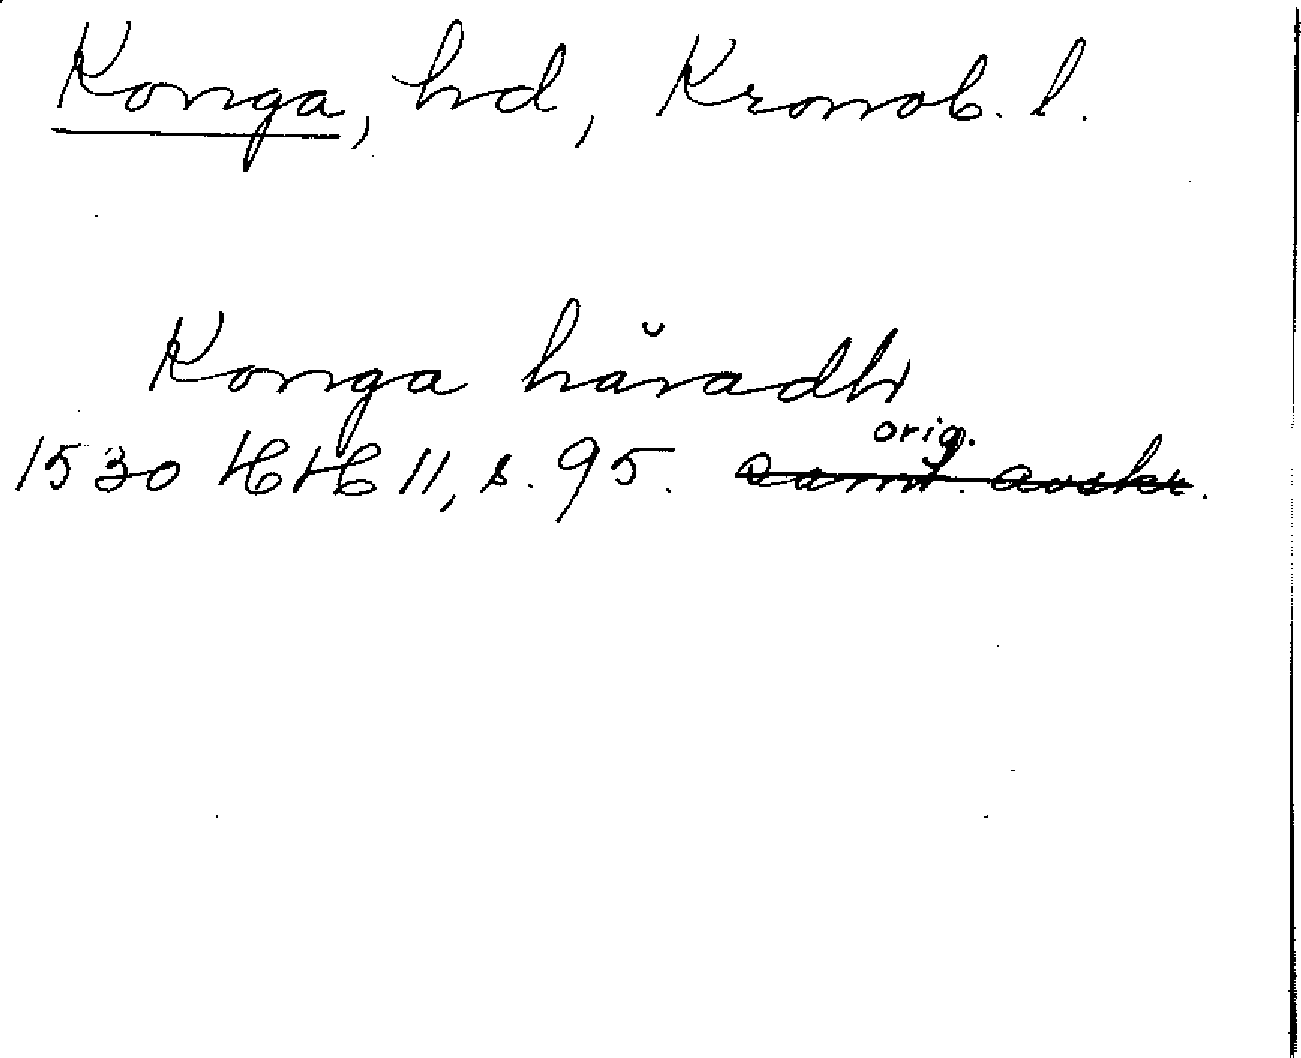 Konga, hd, Kronob. l.
Konga häradh
orig.
1530 HH 11, s. 95. samt. avskr.